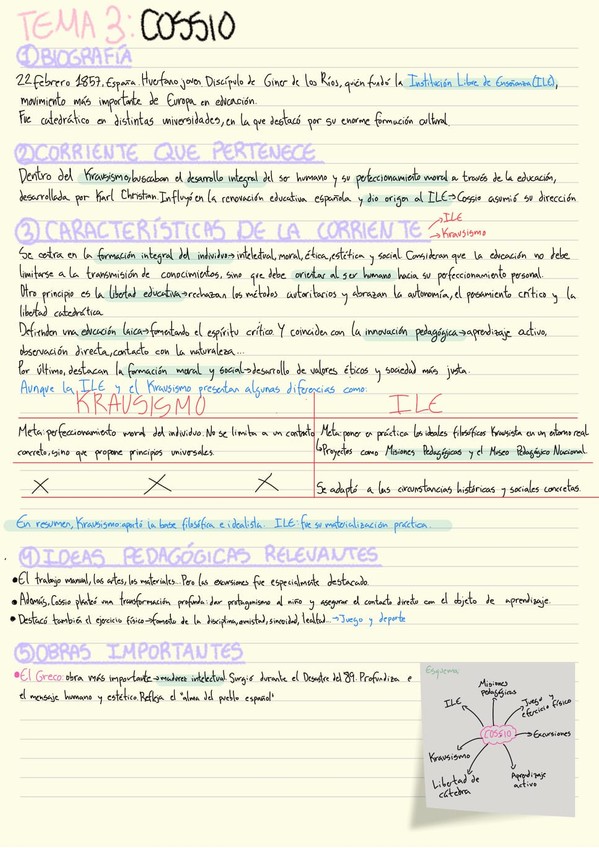 TEMA 3: COSSIO
① BIOGRAFÍA
22 febrero 1857. España. Huerfano joven Discípulo de Giner de los Ríos, quién fundó la Institución Libre de Enseñanza (ILE),
movimiento más importante de Europa en educación.
Fue catedrático en distintas universidades, en la que destacó por su enorme formación cultural.
② CORRIENTE QUE PERTENECE
Dentro del Krausismo, buscaban el desarrollo integral del ser humano y su perfeccionamiento moral a través de la educación,
desarrollada por Karl Christian. Influyó en la renovación educativa española y dio origen al ILE → Cossio asumió su dirección
③ CARACTERÍSTICAS DE LA CORRIENTE → ILE
→ Krausismo
Se centra en la formación integral del individuo → intelectual, moral, ética, estética y social. Consideran que la educación no debe
limitarse a la transmisión de conocimientos, sino que debe orientar al ser humano hacia su perfeccionamiento personal.
Otro principio es la libertad educativa → rechazan los métodos autoritarios y abrazan la autonomía, el pesamiento crítico y la
libertad catedrática.
Defienden una educación laica → fomentando el espíritu crítico. Y coinciden con la innovación pedagógica → aprendizaje activo,
observación directa, contacto con la naturaleza...
Por último, destacan la formación moral y social → desarrollo de valores éticos y sociedad más justa.
Aunque la ILE y el Krausismo presentan algunas diferencias como:
KRAUSISMO ILE
Meta: perfeccionamiento moral del individuo. No se limita a un contexto Meta: poner en práctica los ideales filosóficos Krausista en un entorno real
concreto, sino que propone principios universales. ↳ Proyectos como Misiones Pedagógicas y el Museo Pedagógico Nacional
X X X Se adaptó a las circunstancias históricas y sociales concretas.
En resumen, Krausismo: aportó la base filosófica e idealista. ILE: fue su materialización práctica.
④ IDEAS PEDAGÓGICAS RELEVANTES
• El trabajo manual, las artes, los materiales... Pero las excursiones fue especialmente destacado.
• Además, Cossio planteó una transformación profunda: dar protagonismo al niño y asegurar el contacto directo con el objeto de aprendizaje.
• Destacó también el ejercicio físico → fomento de la disciplina, amistad, sinceridad, lealtad... → Juego y deporte
⑤ OBRAS IMPORTANTES
• El Greco: obra más importante → madurez intelectual. Surgió durante el Desastre del 89. Profundiza e
el mensaje humano y estético. Refleja el "alma del pueblo español"
Esquema
Misiones
pedagógicas
ILE
Juego y
ejercicio físico
COSSIO
Excursiones
Krausismo
Libertad de
cátedra
Aprendizaje
activo